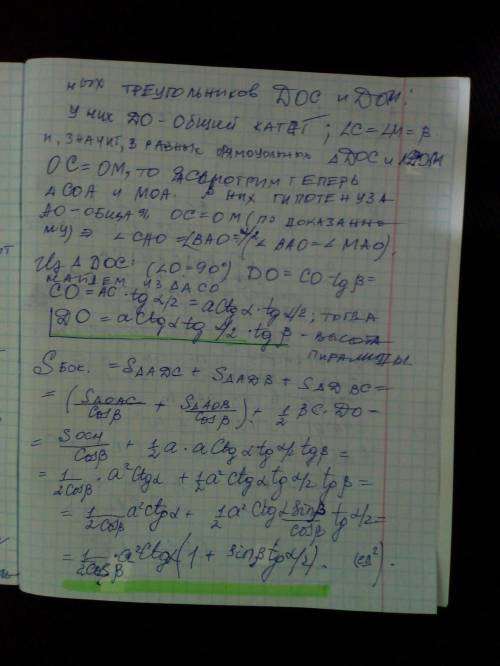 ных треугольников DOC и DOM:
У них DO - общий катет; ∠C=∠M=β
и, значит, в равных прямоугольных ΔDOC и ΔDOM
OC=OM, то рассмотрим теперь
ΔCOA и MOA. В них гипотенуза
AO - общая, OC=OM (по доказанно-
му) ⇒ ∠CAO=∠BAO=α/2 (∠BAO=∠MAO).
Из ΔDOC: (∠O=90°) DO=CO·tgβ=
найдем из ΔACO
CO=AC·tgα/2=actgα·tgα/2; тогда
DO=actgαtgα/2·tgβ - высота
пирамиды
Sбок. = SΔADC + SΔADB + SΔDBC=
=(SΔOAC/cosβ + SΔAOB/cosβ)+ 1/2 BC·DO-
= Sосн/cosβ + 1/2a·actgαtgα/2tgβ=
=1/2cosβ·a²ctgα+1/2a²ctgαtgα/2tgβ=
=1/2cosβ a²ctgα+ 1/2a²ctgα sinβ/cosβ tgα/2=
=1/2cosβ·a²ctgα(1+sinβtgα/2). (ед²).